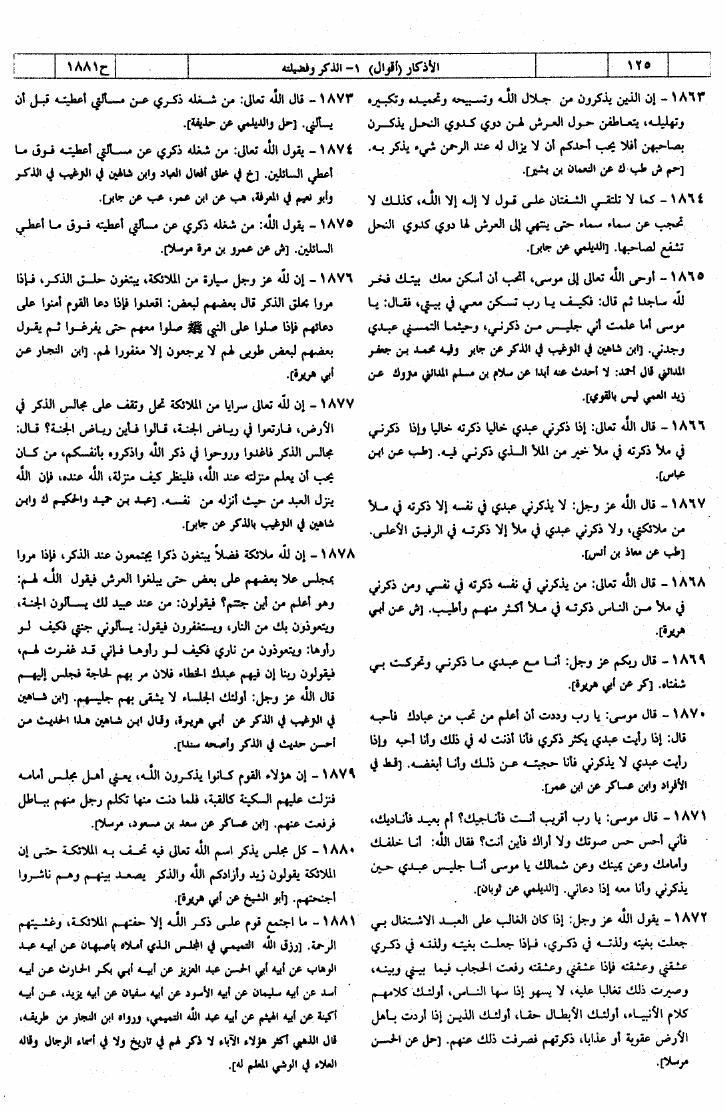 ١٢٥
الأذكار (أقوال) ١- الذكر وفضيلته
ح١٨٨١
١٨٦٣- إن الذين يذكرون من جلال اللّـه وتسبيحه وتحميده وتكبيره
وتهليله، يتعاطفن حول العرش لهن دوي كدوي النحل يذكرن
بصاحبهن أفلا يحب أحدكم أن لا يزال له عند الرحمن شيء يذكر به.
[حم ش طب ك عن النعمان بن بشير].
١٨٦٤- كما لا تلتقي الشفتان على قول لا إله إلا اللّه، كذلك لا
تحجب عن سماء سماء حتى ينتهي إلى العرش لها دوي كدوي النحل
تشفع لصاحبها. [الديلمي عن جابر].
١٨٦٥- أوحى اللّه تعالى إلى موسى، أتحب أن أسكن معك بيتك فخر
للّه ساجدا ثم قال: فكيف يا رب تسكن معي في بيتي، فقال: يا
موسى أما علمت أني جليس من ذكرني، وحيثما التمسني عبدي
وجدني. [ابن شاهين في الترغيب في الذكر عن جابر وفيه محمد بن جعفر
المدائني قال أحمد: لا أحدث عنه أبدا عن سلام بن مسلم المدائني متروك عن
زيد العمي ليس بالقوي].
١٨٦٦- قال اللّه تعالى: إذا ذكرني عبدي خاليا ذكرته خاليا وإذا ذكرني
في ملأ ذكرته في ملأ خير من الملأ الذي ذكرني فيه. [طب عن ابن
عباس].
١٨٦٧- قال اللّه عز وجل: لا يذكرني عبدي في نفسه إلا ذكرته في ملأ
من ملائكتي، ولا ذكرني عبدي في ملأ إلا ذكرته في الرفيق الأعلى.
[طب عن معاذ بن أنس].
١٨٦٨- قال اللّه تعالى: من يذكرني في نفسه ذكرته في نفسي ومن ذكرني
في ملأ من الناس ذكرته في ملأ أكثر منهم وأطيب. [ش عن أبي
هريرة].
١٨٦٩- قال ربكم عز وجل: أنا مع عبدي ما ذكرني وتحركت بي
شفتاه. [كر عن أبي هريرة].
١٨٧٠- قال موسى: يا رب وددت أن أعلم من تحب من عبادك فأحبه
قال: إذا رأيت عبدي يكثر ذكري فأنا أذنت له في ذلك وأنا أحبه وإذا
رأيت عبدي لا يذكرني فأنا حجبته عن ذلك وأنا أبغضه. [قط في
الأفراد وابن عساكر عن ابن عمر].
١٨٧١- قال موسى: يا رب أقريب أنت فأناجيك؟ أم بعيد فأناديك،
فأني أحس حس صوتك ولا أراك فأين أنت؟ فقال اللّه: أنا خلفك
وأمامك وعن يمينك وعن شمالك يا موسى أنا جليس عبدي حين
يذكرني وأنا معه إذا دعاني. [الديلمي عن ثوبان].
١٨٧٢- يقول اللّه عز وجل: إذا كان الغالب على العبد الاشتغال بي
جعلت بغيته ولذته في ذكري، فإذا جعلت بغيته ولذته في ذكري
عشقني وعشقته فإذا عشقني وعشقته رفعت الحجاب فيما بيني وبينه،
وصيرت ذلك تغالبا عليه، لا يسهو إذا سها الناس، أولئك كلامهم
كلام الأنبياء، أولئك الأبطال حقا، أولئك الذين إذا أردت بأهل
الأرض عقوبة أو عذابا، ذكرتهم فصرفت ذلك عنهم. [حل عن الحسن
مرسلا].
١٨٧٣- قال اللّه تعالى: من شغله ذكري عن مسألتي أعطيته قبل أن
يسألني. [حل والديلمي عن حذيفة].
١٨٧٤- يقول اللّه تعالى: من شغله ذكري عن مسألتي أعطيته فوق ما
أعطي السائلين. [خ في خلق أفعال العباد وابن شاهين في الترغيب في الذكر
وأبو نعيم في المعرفة، هب عن ابن عمر، عب عن جابر].
١٨٧٥- يقول اللّه: من شغله ذكري عن مسألتي أعطيته فوق ما أعطي
السائلين. [ش عن عمرو بن مرة مرسلا].
١٨٧٦- إن للّه عز وجل سيارة من الملائكة، يبتغون حلق الذكر، فإذا
مروا بحلق الذكر قال بعضهم لبعض: اقعدوا فإذا دعا القوم أمنوا على
دعائهم فإذا صلوا على النبي ﷺ صلوا معهم حتى يفرغوا ثم يقول
بعضهم لبعض طوبى لهم لا يرجعون إلا مغفورا لهم. [ابن النجار عن
أبي هريرة].
١٨٧٧- إن للّه تعالى سرايا من الملائكة تحل وتقف على مجالس الذكر في
الأرض، فارتعوا في رياض الجنة، قالوا فأين رياض الجنة؟ قال:
مجالس الذكر فاغدوا وروحوا في ذكر اللّه واذكروه بأنفسكم، من كان
يحب أن يعلم منزلته عند اللّه، فلينظر كيف منزلة، اللّه عنده، فإن اللّه
ينزل العبد من حيث أنزله من نفسه. [عبد بن حميد والحكيم ك وابن
شاهين في الترغيب بالذكر عن جابر].
١٨٧٨- إن للّه ملائكة فضلاً يبتغون ذكرا يجتمعون عند الذكر، فإذا مروا
بمجلس علا بعضهم على بعض حتى يبلغوا العرش فيقول اللّه لهم:
وهو أعلم من أين جئتم؟ فيقولون: من عند عبيد لك يسألون الجنة،
ويتعوذون بك من النار، ويستغفرون فيقول: يسألوني جنتي فكيف لو
رأوها: ويتعوذون من ناري فكيف لو رأوها فإني قد غفرت لهم،
فيقولون ربنا إن فيهم عبدك الخطاء فلان مر بهم لحاجة فجلس إليهم
قال اللّه عز وجل: أولئك الجلساء لا يشقى بهم جليسهم. [ابن شاهين
في الترغيب في الذكر عن أبي هريرة، وقال ابن شاهين هذا الحديث من
أحسن حديث في الذكر وأصحه سندا].
١٨٧٩- إن هؤلاء القوم كانوا يذكرون اللّه، يعني أهل مجلس أمامه
فنزلت عليهم السكينة كالقبة، فلما دنت منها تكلم رجل منهم بباطل
فرفعت عنهم. [ابن عساكر عن سعد بن مسعود، مرسلا].
١٨٨٠- كل مجلس يذكر اسم اللّه تعالى فيه تحف به الملائكة حتى إن
الملائكة يقولون زيد وأزادكم اللّه والذكر يصعد بينهم وهم ناشروا
أجنحتهم. [أبو الشيخ عن أبي هريرة].
١٨٨١- ما اجتمع قوم على ذكر اللّه إلا حفتهم الملائكة، وغشيتهم
الرحمة. [رزق اللّه التميمي في المجلس الذي أملاه بأصبهان عن أبيه عبد
الوهاب عن أبيه أبي الحسن عبد العزيز عن أبيه أبي بكر الحارث عن أبيه
أسد عن أبيه سليمان عن أبيه الأسود عن أبيه سفيان عن أبيه يزيد، عن أبيه
أكينة عن أبيه الهيثم عن أبيه عبد اللّه التميمي، ورواه ابن النجار من طريقه،
قال الذهبي أكثر هؤلاء الآباء لا ذكر لهم في تاريخ ولا في أسماء الرجال وقاله
العلاء في الوشي المعلم له].